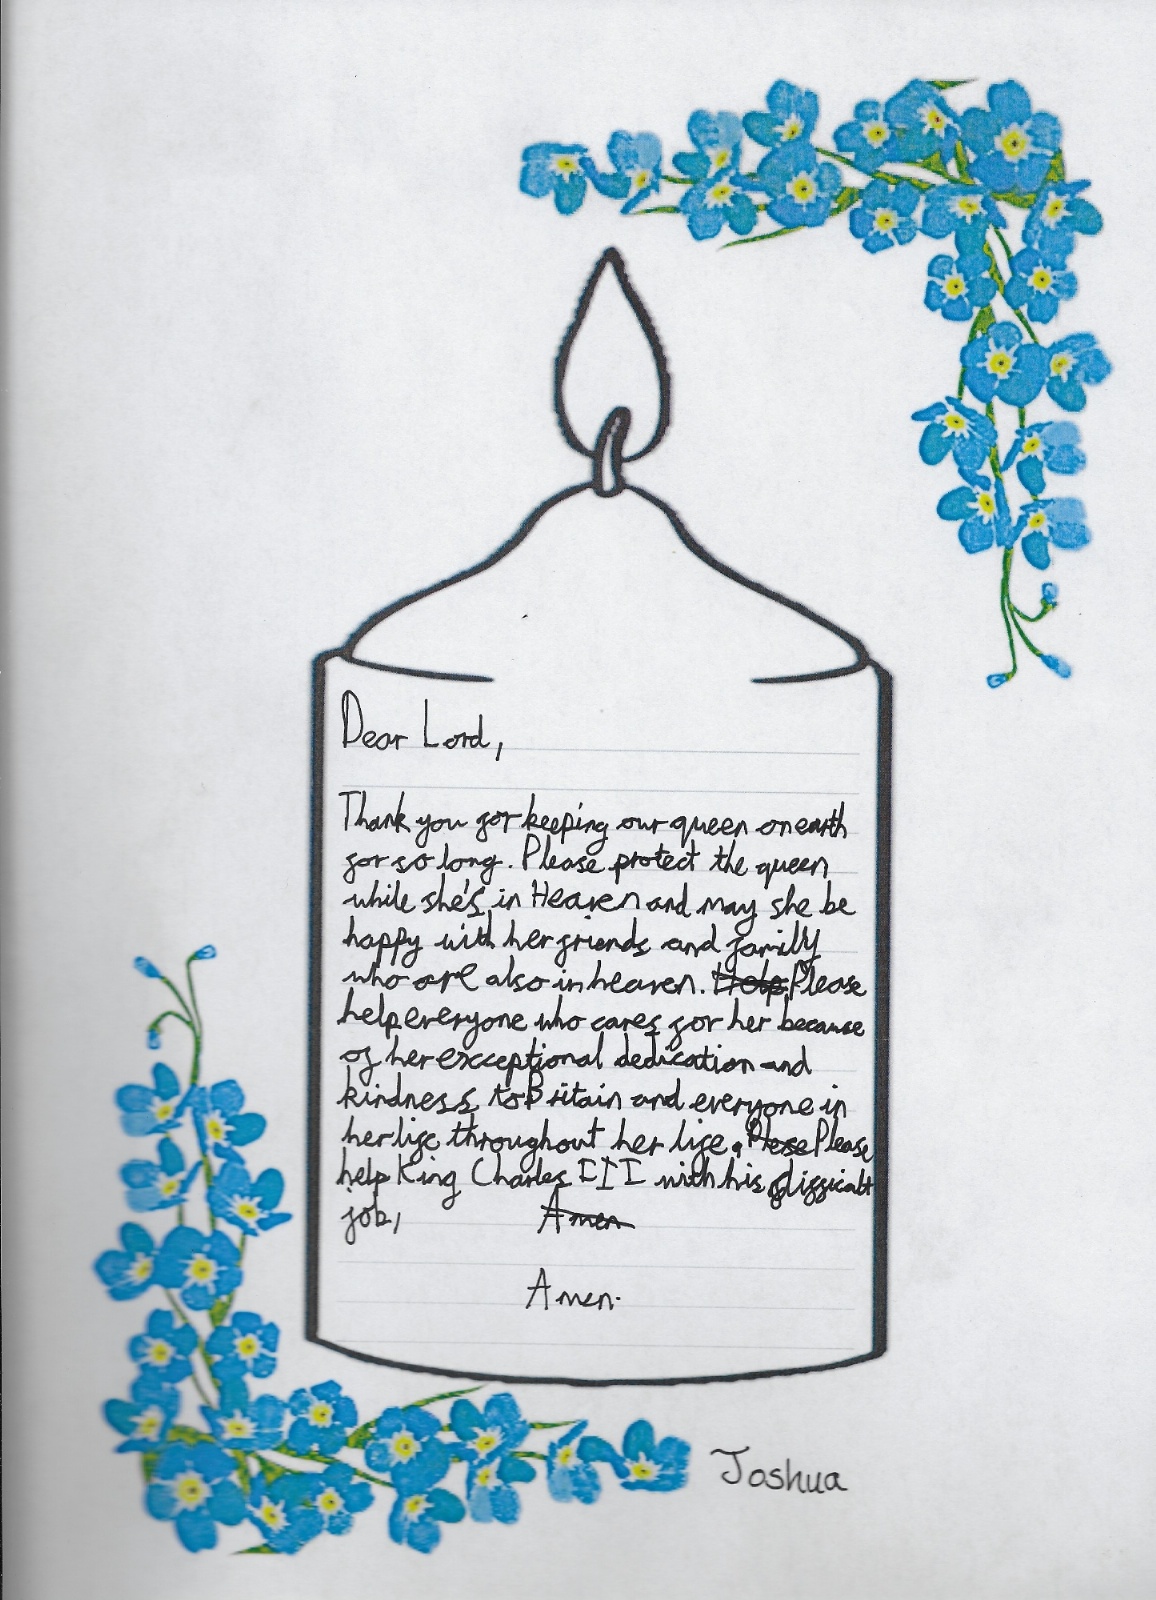 Dear Lord,
Thank you for keeping our queen on earth
for so long. Please protect the queen
while she's in Heaven and may she be
happy with her friends and family
who are also in heaven. Help Please
help everyone who cares for her because
of her exceptional dedication and
kindness to Britain and everyone in
her life throughout her life. Plese Please
help King Charles III with his difficalt
job,   Amen
Amen.
Joshua